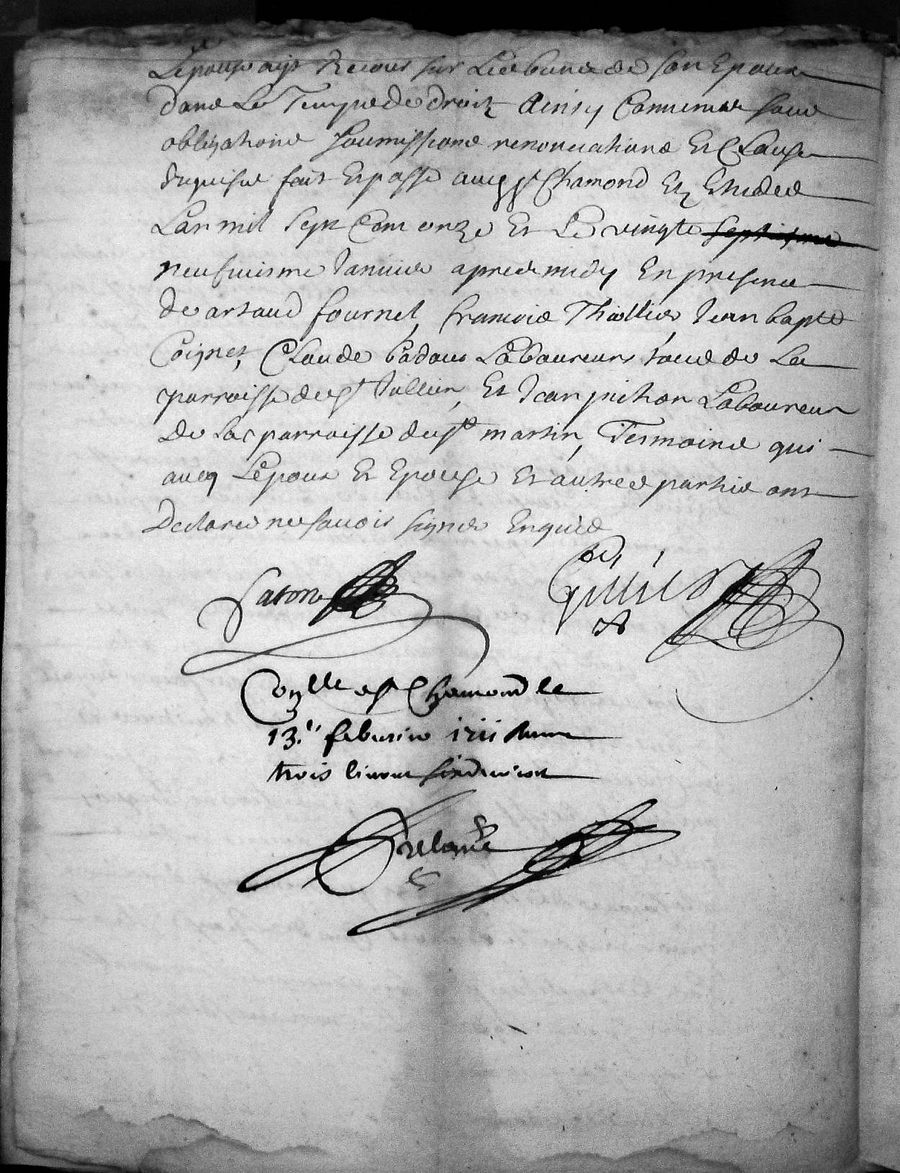 L'epouse aye Recour sur Les biens de son Epoux
dans Le Temps de droit Ainsy Convenue sous
obligations soumissions renonciations Et Clause
Requise fait Et passé a St Chamond Ez Etudes
L'an mil sept Cent onze Et Le vingt
neufuieme Janvier apres midy En presence
de artaud fournel, francois Thollier, Jean bapte
Coignet, Claude badou Laboureurs tous de La
parroisse de St Jullien, Et Jean pichon Laboureur
De la parroisse de St martin, Tesmoins qui
avec L'epoux Et Epouse Et autres parties ont
Declarés ne savoir signer Enquis

Con.lle a St Chamond le
13.e febvrier 1711 Receu
trois livres